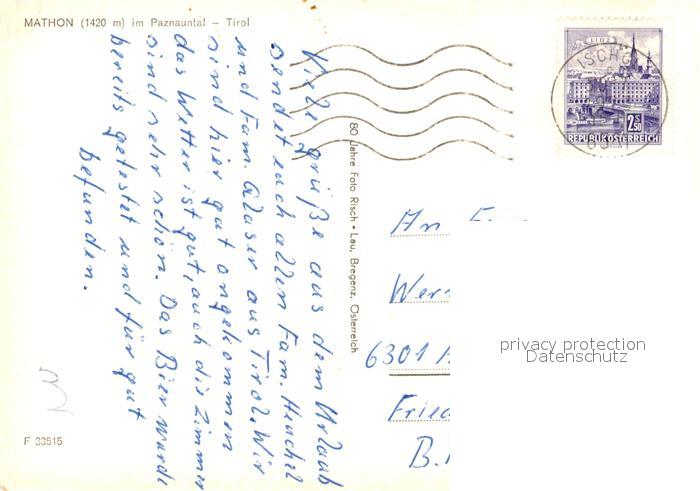 MATHON (1420 m) im Paznauntal – Tirol
Viele Grüße aus dem Urlaub
sendet euch allen Fam. Heuchel
und Fam. Glaser aus Tirol. Wir
sind hier gut angekommen
das Wetter ist gut, auch die Zimmer
sind sehr schön. Das Bier wurde
bereits getestet und für gut
befunden.
F 33515
80 Jahre Foto Risch • Lau, Bregenz, Österreich
LINZ
ISCHGL
2.50
REPUBLIK ÖSTERREICH
An
6301
B.
privacy protection
Datenschutz